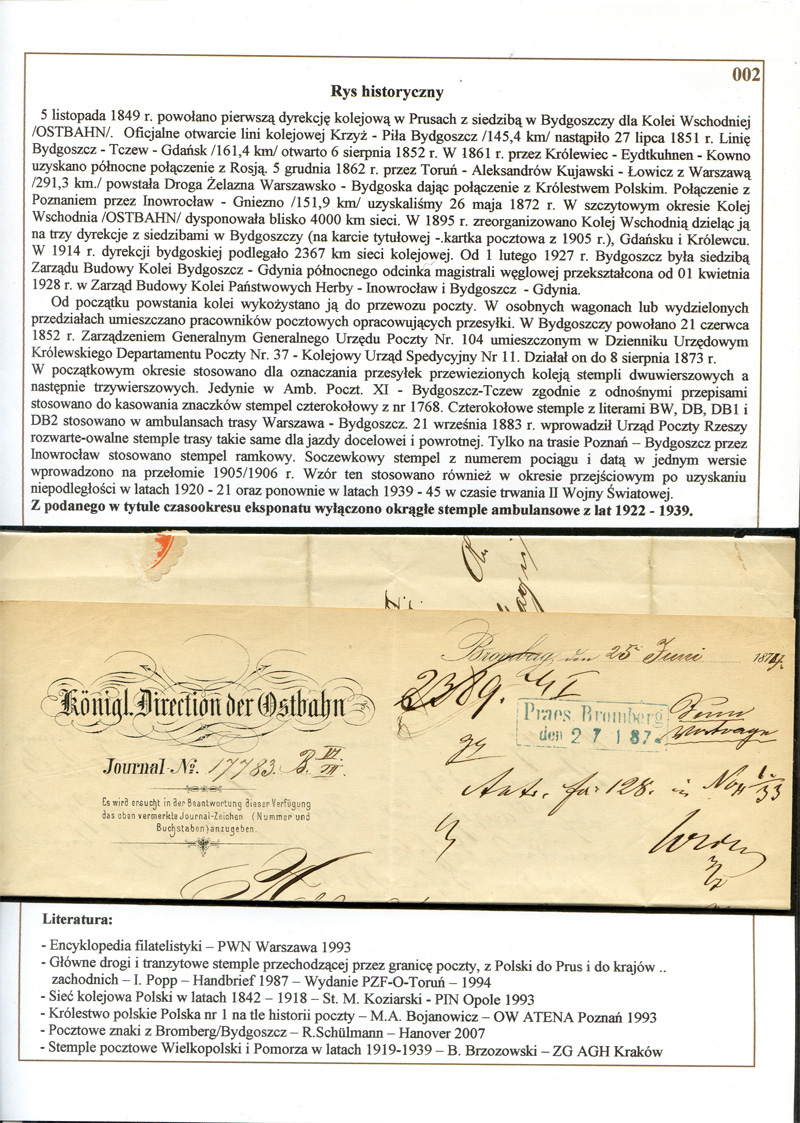 002
Rys historyczny
5 listopada 1849 r. powołano pierwszą dyrekcję kolejową w Prusach z siedzibą w Bydgoszczy dla Kolei Wschodniej
/OSTBAHN/. Oficjalne otwarcie lini kolejowej Krzyż - Piła Bydgoszcz /145,4 km/ nastąpiło 27 lipca 1851 r. Linię
Bydgoszcz - Tczew - Gdańsk /161,4 km/ otwarto 6 sierpnia 1852 r. W 1861 r. przez Królewiec - Eydtkuhnen - Kowno
uzyskano północne połączenie z Rosją. 5 grudnia 1862 r. przez Toruń - Aleksandrów Kujawski - Łowicz z Warszawą
/291,3 km./ powstała Droga Żelazna Warszawsko - Bydgoska dając połączenie z Królestwem Polskim. Połączenie z
Poznaniem przez Inowrocław - Gniezno /151,9 km/ uzyskaliśmy 26 maja 1872 r. W szczytowym okresie Kolej
Wschodnia /OSTBAHN/ dysponowała blisko 4000 km sieci. W 1895 r. zreorganizowano Kolej Wschodnią dzieląc ją
na trzy dyrekcje z siedzibami w Bydgoszczy (na karcie tytułowej -.kartka pocztowa z 1905 r.), Gdańsku i Królewcu.
W 1914 r. dyrekcji bydgoskiej podlegało 2367 km sieci kolejowej. Od 1 lutego 1927 r. Bydgoszcz była siedzibą
Zarządu Budowy Kolei Bydgoszcz - Gdynia północnego odcinka magistrali węglowej przekształcona od 01 kwietnia
1928 r. w Zarząd Budowy Kolei Państwowych Herby - Inowrocław i Bydgoszcz - Gdynia.
Od początku powstania kolei wykożystano ją do przewozu poczty. W osobnych wagonach lub wydzielonych
przedziałach umieszczano pracowników pocztowych opracowujących przesyłki. W Bydgoszczy powołano 21 czerwca
1852 r. Zarządzeniem Generalnym Generalnego Urzędu Poczty Nr. 104 umieszczonym w Dzienniku Urzędowym
Królewskiego Departamentu Poczty Nr. 37 - Kolejowy Urząd Spedycyjny Nr 11. Działał on do 8 sierpnia 1873 r.
W początkowym okresie stosowano dla oznaczania przesyłek przewiezionych koleją stempli dwuwierszowych a
następnie trzywierszowych. Jedynie w Amb. Poczt. XI - Bydgoszcz-Tczew zgodnie z odnośnymi przepisami
stosowano do kasowania znaczków stempel czterokołowy z nr 1768. Czterokołowe stemple z literami BW, DB, DB1 i
DB2 stosowano w ambulansach trasy Warszawa - Bydgoszcz. 21 września 1883 r. wprowadził Urząd Poczty Rzeszy
rozwarte-owalne stemple trasy takie same dla jazdy docelowej i powrotnej. Tylko na trasie Poznań – Bydgoszcz przez
Inowrocław stosowano stempel ramkowy. Soczewkowy stempel z numerem pociągu i datą w jednym wersie
wprowadzono na przełomie 1905/1906 r. Wzór ten stosowano również w okresie przejściowym po uzyskaniu
niepodległości w latach 1920 - 21 oraz ponownie w latach 1939 - 45 w czasie trwania II Wojny Światowej.
Z podanego w tytule czasookresu eksponatu wyłączono okrągłe stemple ambulansowe z lat 1922 - 1939.
Bromberg, 25 Juni 187
Königl. Direction der Ostbahn
2389.
Praes Bromberg
den 2 7 1 87
Journal-No. 17783. B. VI.
Es wird ersucht in der Beantwortung dieser Verfügung
das oben vermerkte Journal-Zeichen (Nummer und
Buchstaben) anzugeben.
128.
Literatura:
- Encyklopedia filatelistyki – PWN Warszawa 1993
- Główne drogi i tranzytowe stemple przechodzącej przez granicę poczty, z Polski do Prus i do krajów ..
zachodnich – I. Popp – Handbrief 1987 – Wydanie PZF-O-Toruń – 1994
- Sieć kolejowa Polski w latach 1842 – 1918 – St. M. Koziarski - PIN Opole 1993
- Królestwo polskie Polska nr 1 na tle historii poczty – M.A. Bojanowicz – OW ATENA Poznań 1993
- Pocztowe znaki z Bromberg/Bydgoszcz – R.Schülmann – Hanover 2007
- Stemple pocztowe Wielkopolski i Pomorza w latach 1919-1939 – B. Brzozowski – ZG AGH Kraków